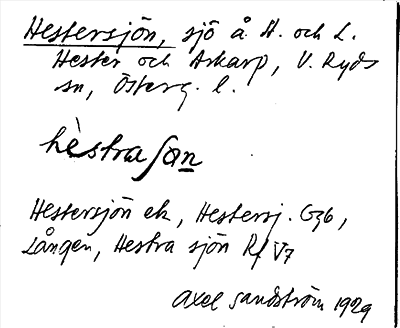 Hestersjön, sjö å. H. och L.
Hester och Askarp, V. Ryds
sn, Österg. l.
hèstraʃɑn
Hestersjön ek, Hestersj. G36,
Lången, Hestra sjön Rf V7
Axel Sandström 1929